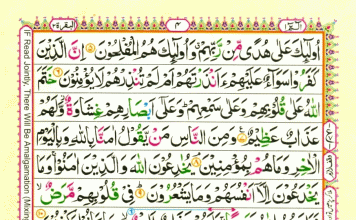 البقرة ٢
٤
الٓمّٓ ١
اُولٰٓئِكَ عَلٰى هُدًى مِّنْ رَّبِّهِمْ وَاُولٰٓئِكَ هُمُ الْمُفْلِحُوْنَ ۝٥ اِنَّ الَّذِيْنَ
كَفَرُوْا سَوَآءٌ عَلَيْهِمْ ءَاَنْذَرْتَهُمْ اَمْ لَمْ تُنْذِرْهُمْ لَا يُؤْمِنُوْنَ ۝٦ خَتَمَ
اللّٰهُ عَلٰى قُلُوْبِهِمْ وَعَلٰى سَمْعِهِمْ وَعَلٰٓى اَبْصَارِهِمْ غِشَاوَةٌ وَّلَهُمْ
عَذَابٌ عَظِيْمٌ ۝٧ وَمِنَ النَّاسِ مَنْ يَّقُوْلُ اٰمَنَّا بِاللّٰهِ وَبِالْيَوْمِ
الْاٰخِرِ وَمَا هُمْ بِمُؤْمِنِيْنَ ۝٨ يُخٰدِعُوْنَ اللّٰهَ وَالَّذِيْنَ اٰمَنُوْا وَمَا
يَخْدَعُوْنَ اِلَّآ اَنْفُسَهُمْ وَمَا يَشْعُرُوْنَ ۝٩ فِيْ قُلُوْبِهِمْ مَّرَضٌ
IF Read Jointly, There Will Be Amalgamation